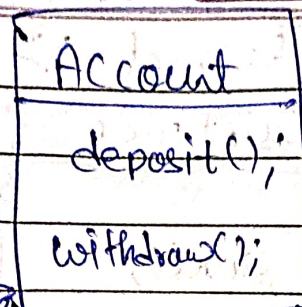 Account
deposit();
withdraw();